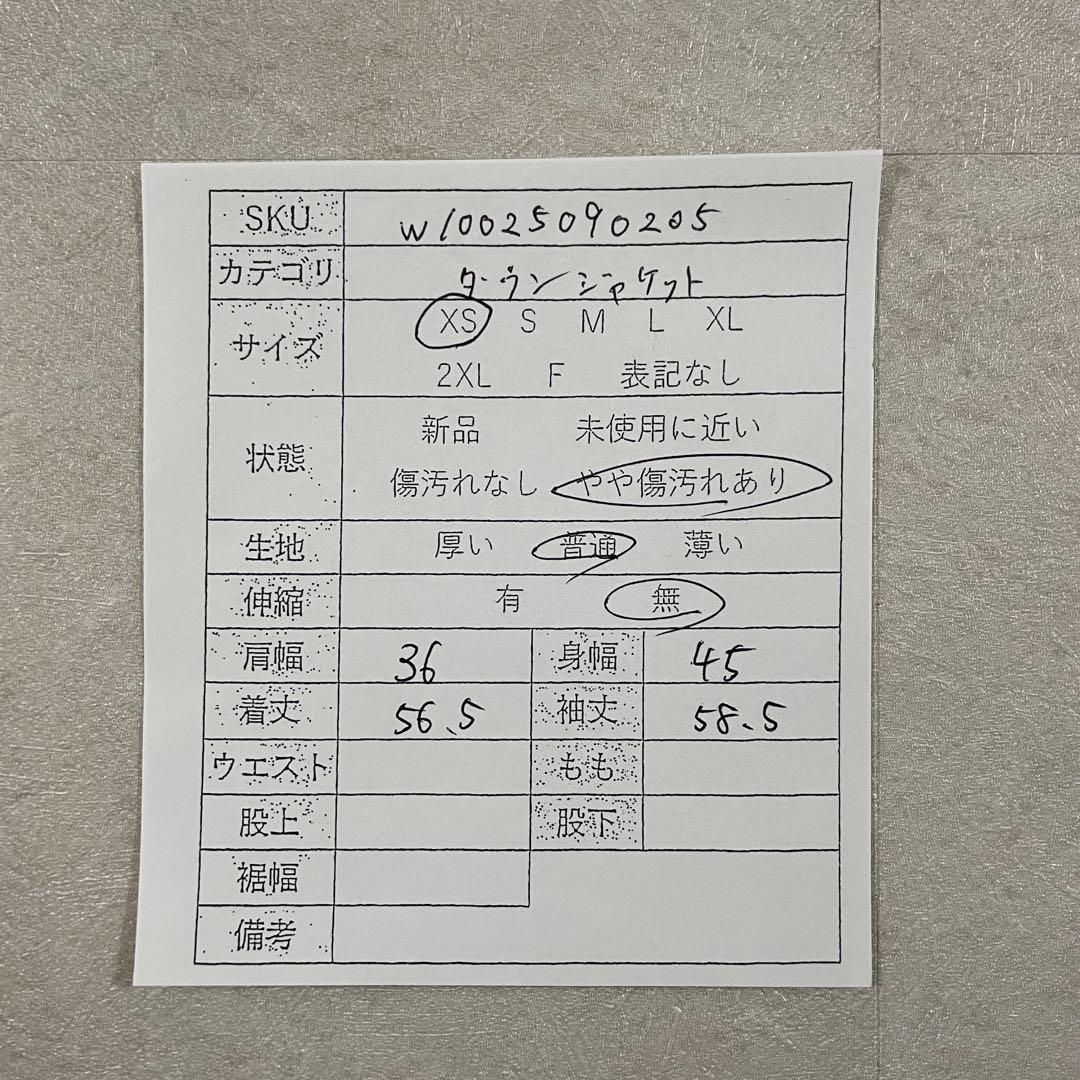 SKU w10025090205
カテゴリ ダウンジャケット
サイズ XS S M L XL
2XL F 表記なし
状態 新品 未使用に近い
傷汚れなし やや傷汚れあり
生地 厚い 普通 薄い
伸縮 有 無
肩幅 36 身幅 45
着丈 56.5 袖丈 58.5
ウエスト もも
股上 股下
裾幅
備考